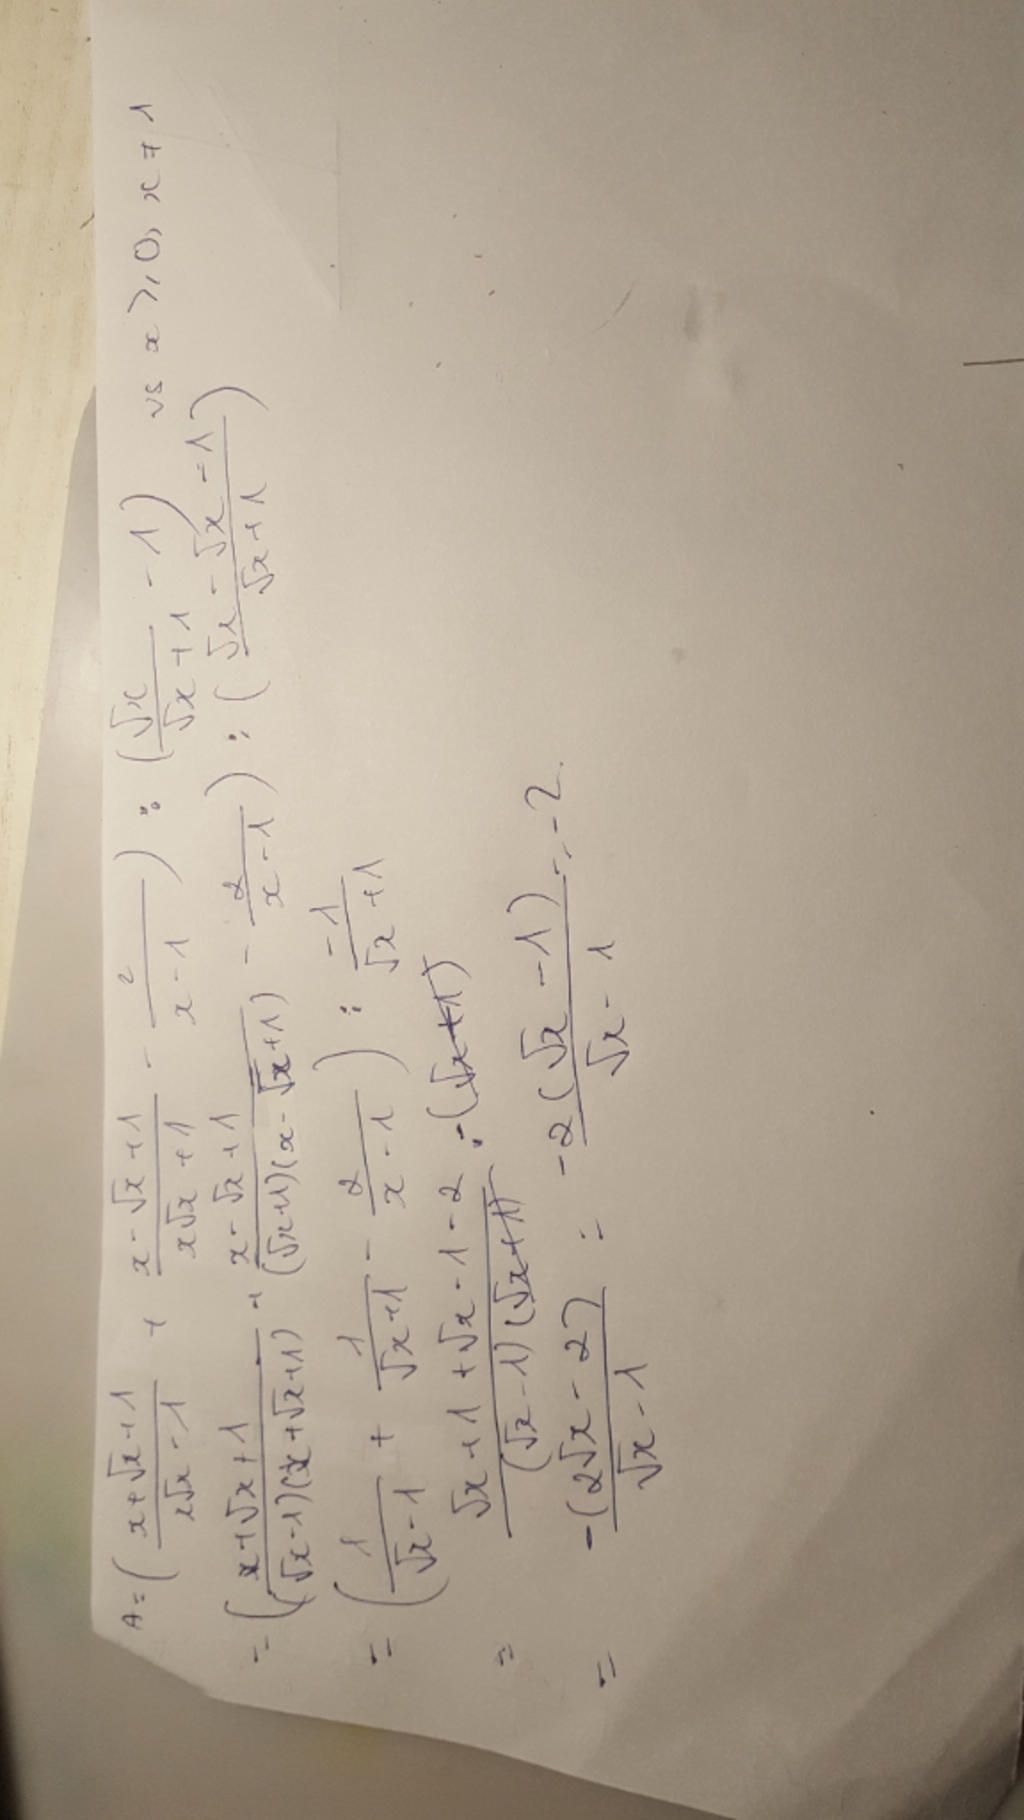 A = ( (x+√x+1)/(x√x-1) + (x-√x+1)/(x√x+1) - 2/(x-1) ) : ( √x/(√x+1) - 1 ) vs x ≥ 0, x ≠ 1
= ( (x+√x+1)/((√x-1)(x+√x+1)) + (x-√x+1)/((√x+1)(x-√x+1)) - 2/(x-1) ) : ( (√x-√x-1)/(√x+1) )
= ( 1/(√x-1) + 1/(√x+1) - 2/(x-1) ) : -1/(√x+1)
= (√x+1+√x-1-2)/((√x-1)(√x+1)) . -(√x+1)
= -(2√x-2)/(√x-1) = -2(√x-1)/(√x-1) = -2